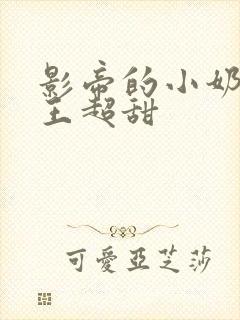 影帝的小奶
王超甜
可愛亞芝莎